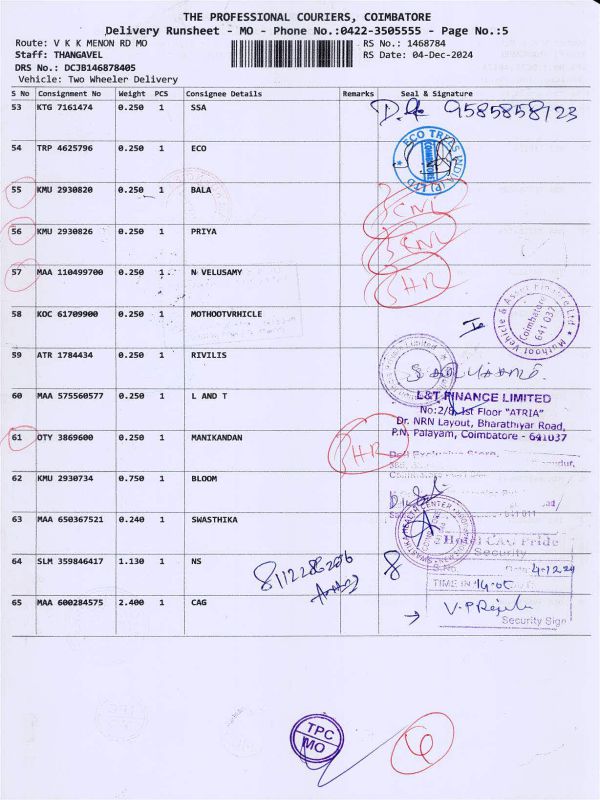 THE PROFESSIONAL COURIERS, COIMBATORE
Delivery Runsheet - MO - Phone No.:0422-3505555 - Page No.:5
Route: V K K MENON RD MO
RS No.: 1468784
Staff: THANGAVEL
RS Date: 04-Dec-2024
DRS No.: DCJB146878405
Vehicle: Two Wheeler Delivery
S No Consignment No Weight PCS Consignee Details Remarks Seal & Signature
53 KTG 7161474 0.250 1 SSA 9585858123
54 TRP 4625796 0.250 1 ECO
ECO TREAS INDIA (P) LTD COIMBATORE
55 KMU 2930820 0.250 1 BALA CNL
56 KMU 2930826 0.250 1 PRIYA CNL
57 MAA 110499700 0.250 1 N VELUSAMY HR
58 KOC 61709900 0.250 1 MOTHOOTVRHICLE
Muthoot Vehicle & Asset Finance Ltd. Coimbatore 641 037
59 ATR 1784434 0.250 1 RIVILIS
60 MAA 575560577 0.250 1 L AND T
L&T FINANCE LIMITED
No:2/8, 1st Floor "ATRIA"
Dr. NRN Layout, Bharathiyar Road,
P.N. Palayam, Coimbatore - 641037
61 OTY 3869600 0.250 1 MANIKANDAN HR
Dell Exclusive Store,
62 KMU 2930734 0.750 1 BLOOM
63 MAA 650367521 0.240 1 SWASTHIKA
HEALTH CENTER
Hotel CAG Pride
Security
64 SLM 359846417 1.130 1 NS 8112286206
Date: 4.12.24
TIME IN 14.05
65 MAA 600284575 2.400 1 CAG
Security Sign
TPC
MO
6